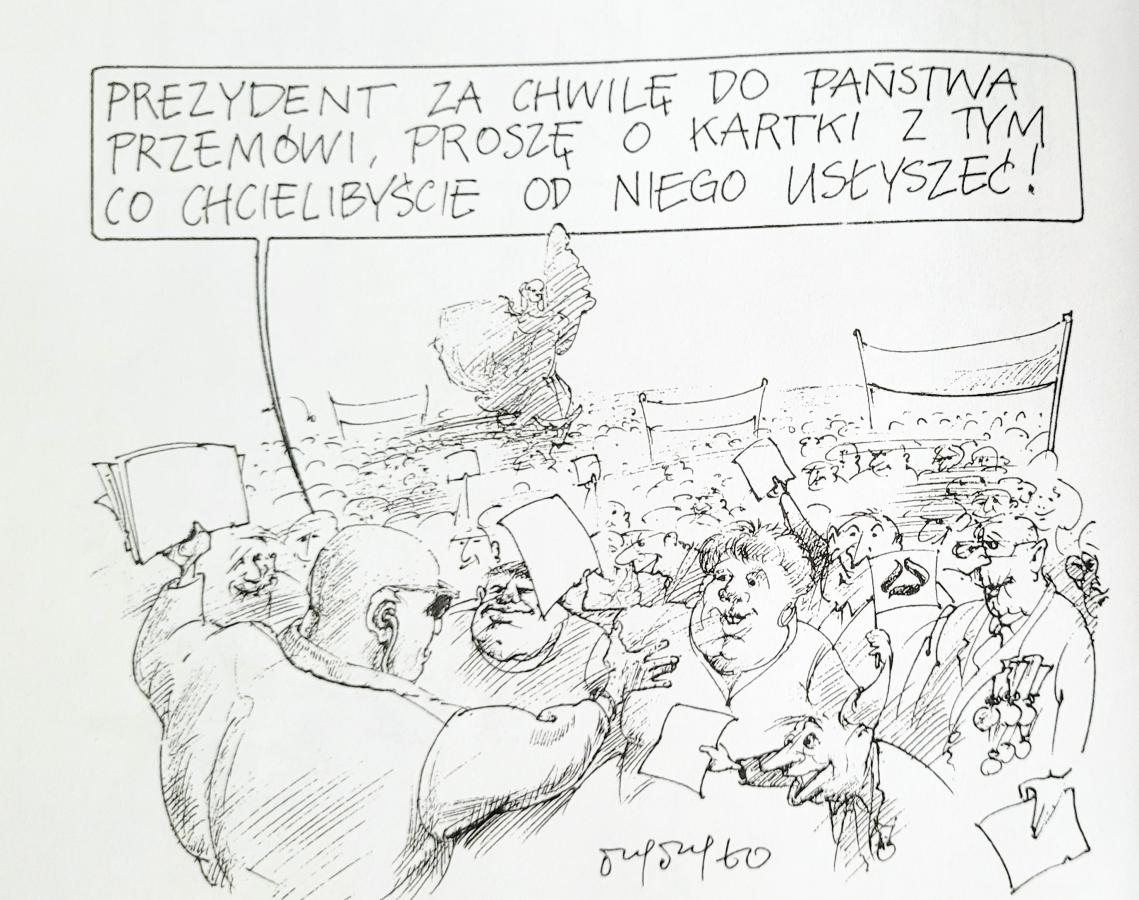 PREZYDENT ZA CHWILĘ DO PAŃSTWA
PRZEMÓWI, PROSZĘ O KARTKI Z TYM
CO CHCIELIBYŚCIE OD NIEGO USŁYSZEĆ!